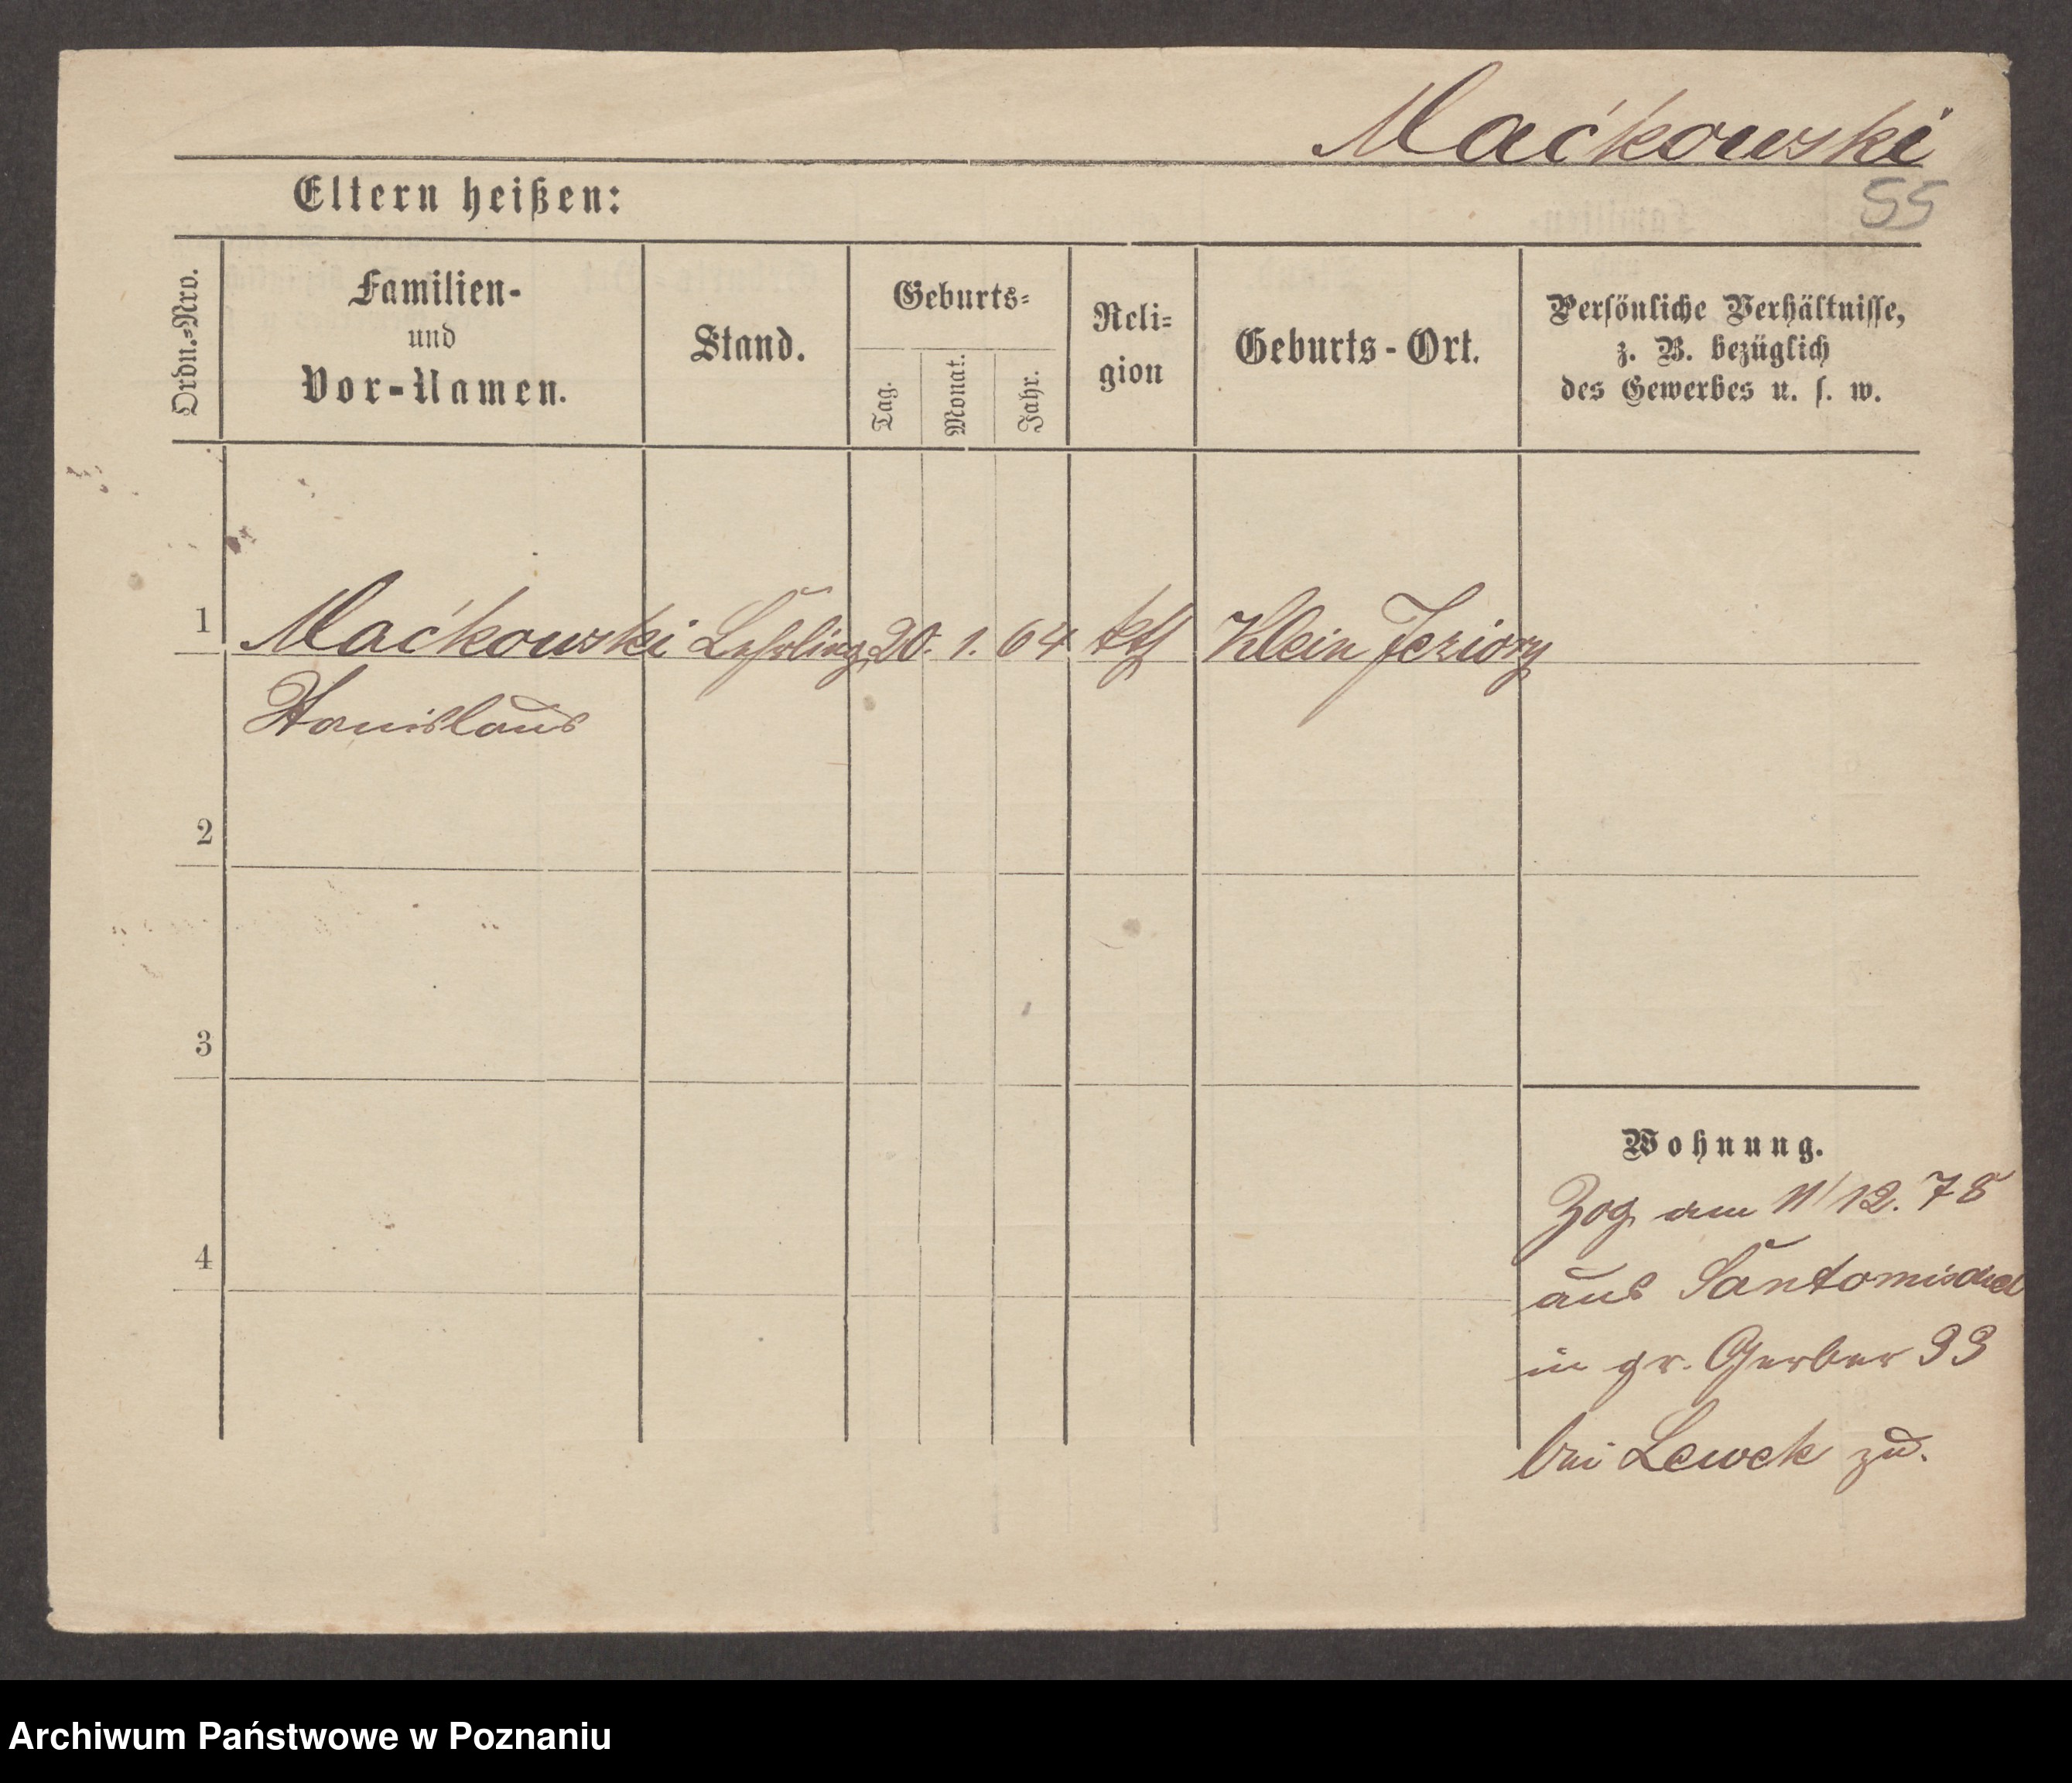 Maćkowski
55
Eltern heißen:
Ordn.=Nro.
Familien-
und
Vor-Namen.
Stand.
Geburts=
Tag.
Monat.
Jahr.
Reli=
gion
Geburts-Ort.
Persönliche Verhältnisse,
z. B. bezüglich
des Gewerbes u. s. w.
1 Maćkowski Lehrling 20. 1. 64 kth Klein Jeziory
Stanislaus
2
3
4
Wohnung.
Zog am 11/12. 78
aus Santomischel
in gr. Gerber 33
bei Lewek zu.
Archiwum Państwowe w Poznaniu